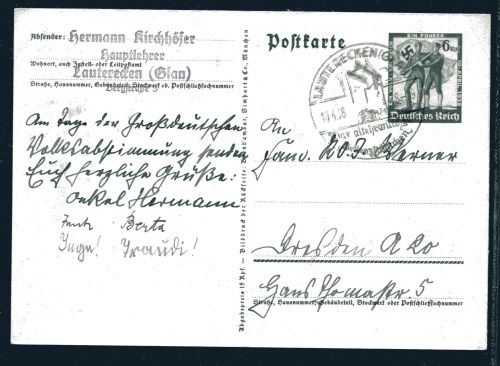 Absender: Hermann Kirchhöfer
Hauptlehrer
Wohnort, auch Zustell- oder Leitpostamt
Lauterecken (Glan)
Bergstraße
Straße, Hausnummer, Gebäudeteil, Stockwerk od. Postschließfachnummer
Am Tage der Großdeutschen
Volksabstimmung senden
Euch herzliche Grüße:
Onkel Hermann
Tante Berta
Inge! Traudi!
Abgabepreis 15 Rpf. - Bilddruck der Rückseite:
München
Postkarte
LAUTERECKEN (GLAN)
EIN FÜHRER
6 Rpf
Deutsches Reich
An
Fam. Werner
Dresden A 20
Hans Thomastr. 5
Straße, Hausnummer, Gebäudeteil, Stockwerk oder Postschließfachnummer